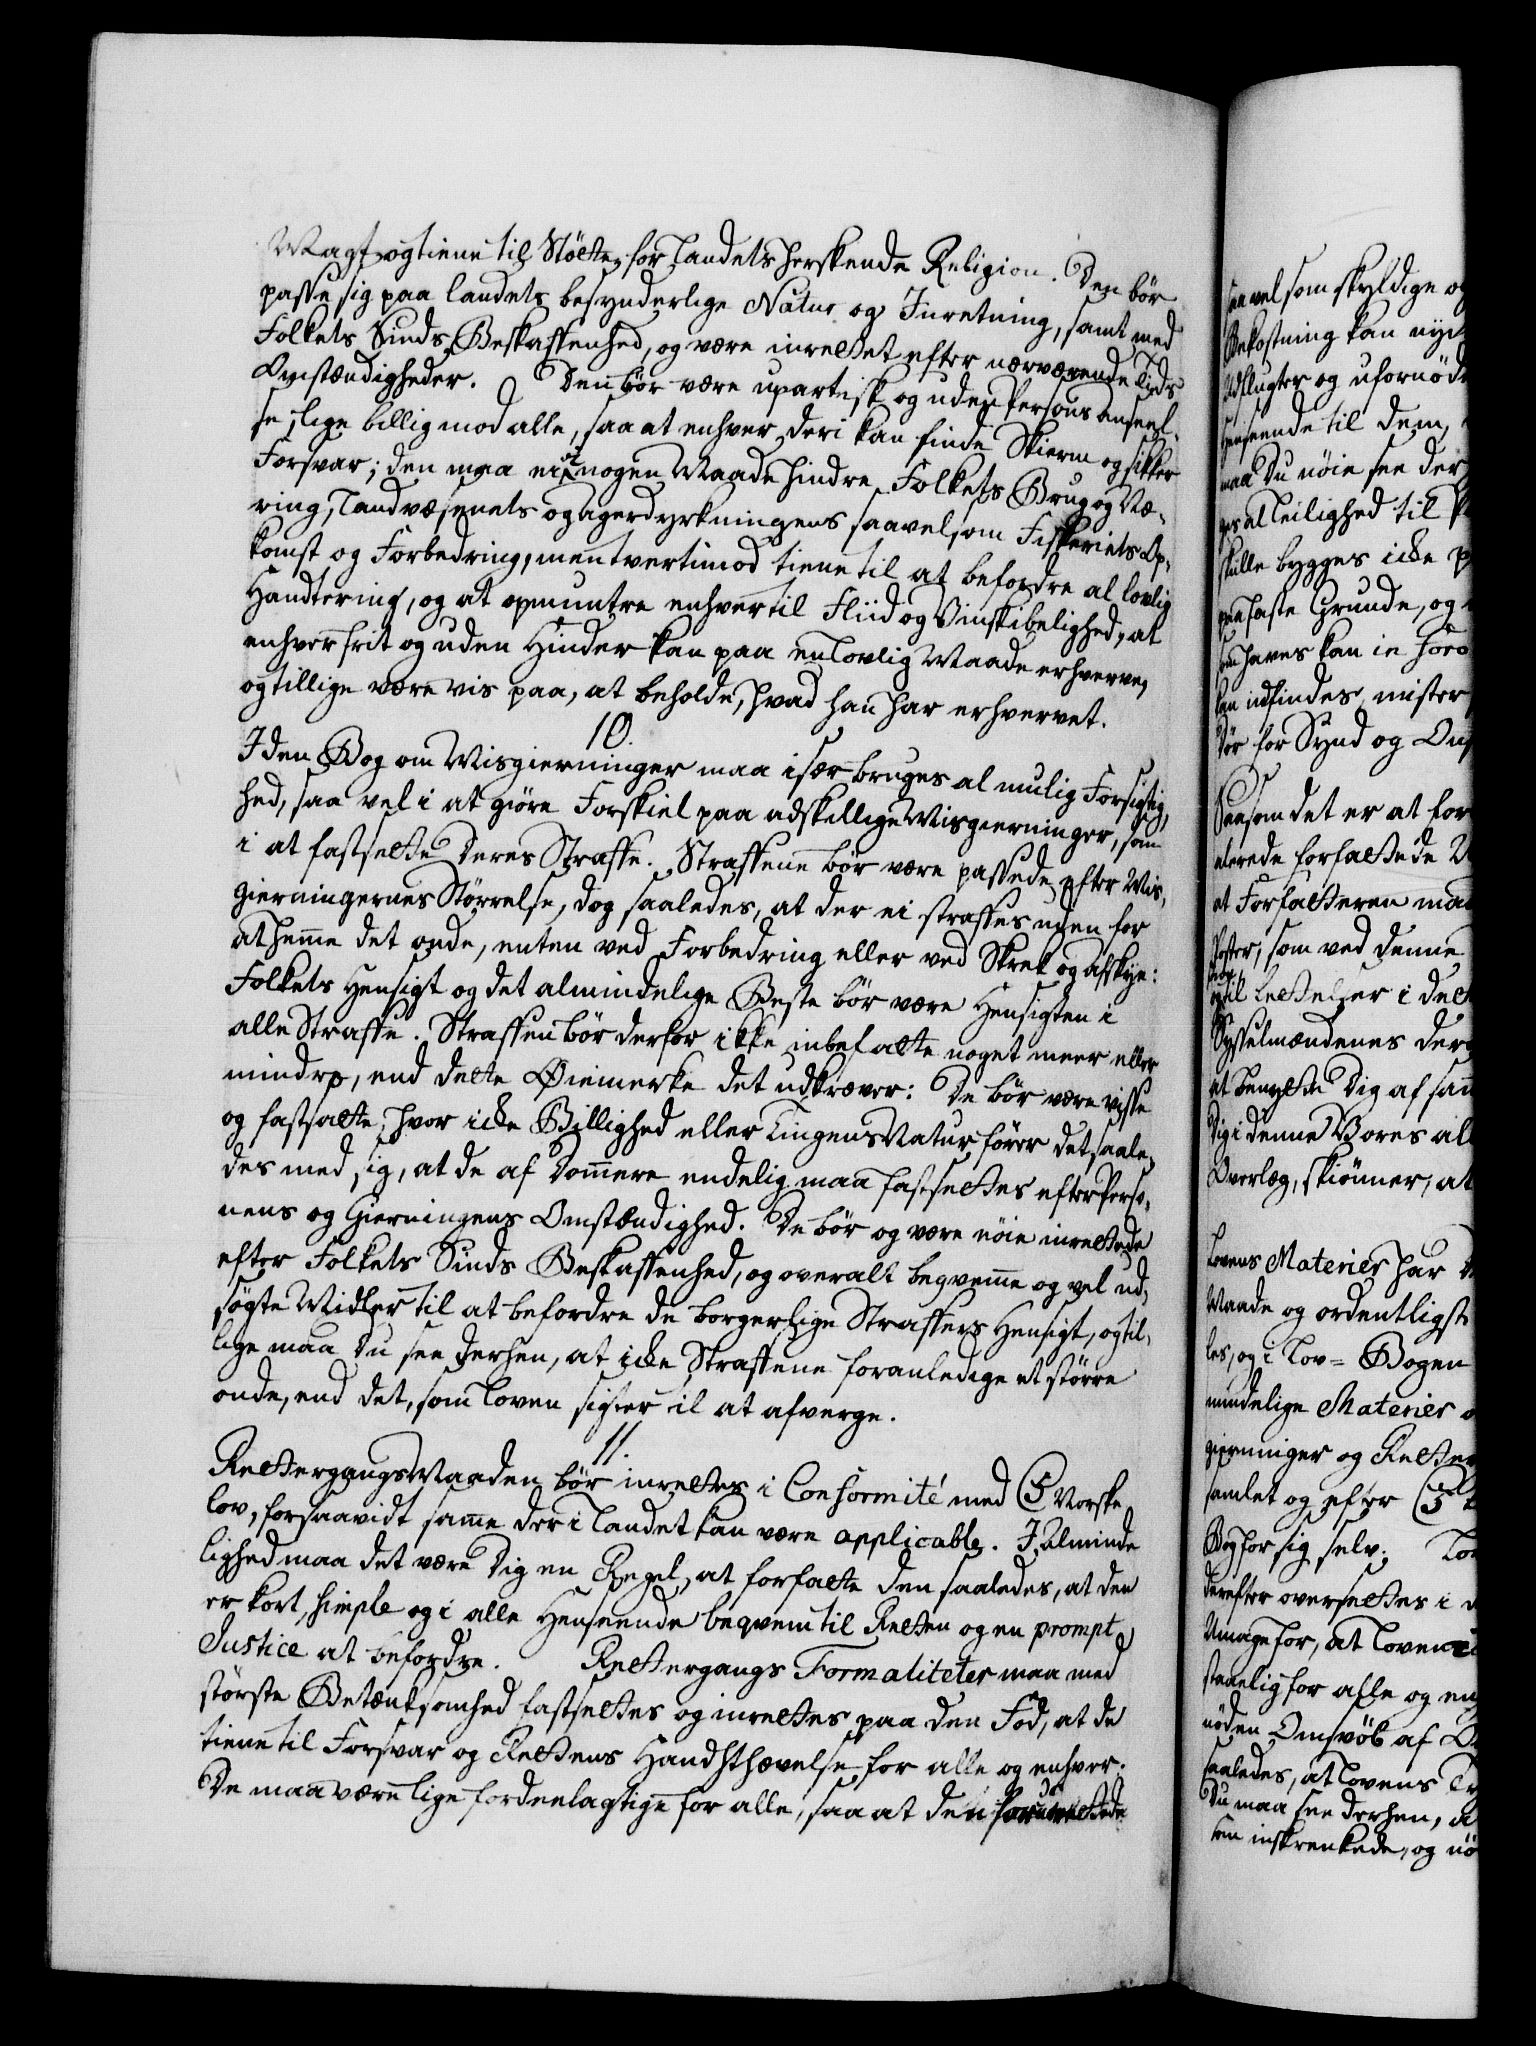 Magt og tiene til Støtte for Landets herskende Religion. Den bør
passe sig paa Landets besynderlige Natur og Inretning, samt med
Folkets Sinds Beskaffenhed, og være inrettet efter nærværende Tids
Omstændigheder. Den bør være upartisk og uden Persons anseel-
se, lige billig mod alle, saa at enhver deri kan finde Skierm og sikker
Forsvar; den maa ei i nogen Maade hindre Folkets Brug og Næ-
ring, Landvæsenets og agerdyrkningens saavelsom Fiskeriets Op-
komst og Forbedring, men tvertimod tiene til at befordre al lovlig
Handtering, og at opmuntre enhver til Fliid og Vinskibelighed, at
enhver frit og uden Hinder kan paa en lovlig Maade erhverve,
og tillige være vis paa, at beholde, hvad han har erhvervet.
10.
I den Bog om Misgierninger maa især bruges al mulig Forsigtig-
hed, saa vel i at giøre Forskiel paa adskillige Misgierninger, som
i at fastsette Deres Straffe. Straffene bør være passede efter Mis-
gierningernes Størrelse, dog saaledes, at der ei straffes uden for
at hemme det onde, enten ved Forbedring eller ved Skrek og afskye:
Folkets Hensigt og det almindelige Beste bør være Hensigten i
alle Straffe. Straffen bør derfor ikke inbefatte noget meer eller
mindre, end dette Øiemerke det udkræver: De bør være visse
og fastsatte, hvor icke Billighed eller Tingens Natur fører det saale-
des med sig, at de af Dommere endelig maa fastsettes efter Perso-
nens og Gierningens Omstændighed. De bør og være nøie inrettede
efter Folkets Sinds Beskaffenhed, og overalt beqvemme og vel ud-
søgte Midler til at befordre de borgerlige Straffers Hensigt, og til-
lige maa Du see derhen, at icke Straffene foranledige et større
onde, end det, som Loven sigter til at afverge.
11.
Rettergangs Maaden bør inrettes i Conformité med C 5 Norske
Lov, forsaavidt samme der i Landet kan være applicable. I Alminde
lighed maa det være Dig en Regel, at forfatte den saaledes, at den
er kort, simple og i alle Henseende beqvem til Retten og en prompt
Justice at befordre. Rettergangs Formaliteter maa med
største Betænksomhed fastsettes og inrettes paa den Fod, at de
tiene til Forsvar og Rettens Handsthævelse for alle og enhver.
De maa være lige fordeelagtige for alle, saa at de
saavel som skyldige og
Bekostning kan nyde
Udflugter og ufornøde
Henseende til dem,
maa Du nøie see der
al Leilighed til
skulle bygges icke
paa faste Grunde, og
haves kan in foro
kan udfindes, mister
Dør for Synd og
Saasom det er at for
allerede forfattede
at Forfatteren maa
Poster, som ved denne
til Rettelser i dett
Sysselmændenes der
at benytte Dig af sam
Dig i denne Vores all
Overlæg, skiønner, at
Lovens Materier har
Maade og ordentligst
les, og i Lov-Bogen
mindelige Materier
gierninger og Retter
samlet og efter C 5
Bog for sig selv.
derefter oversettes i
Umage for, at Loven
staaelig for alle og en
nøden Omsvøb af
saaledes, at Lovens
Du maa see derhen,
inskrenkede, og nø